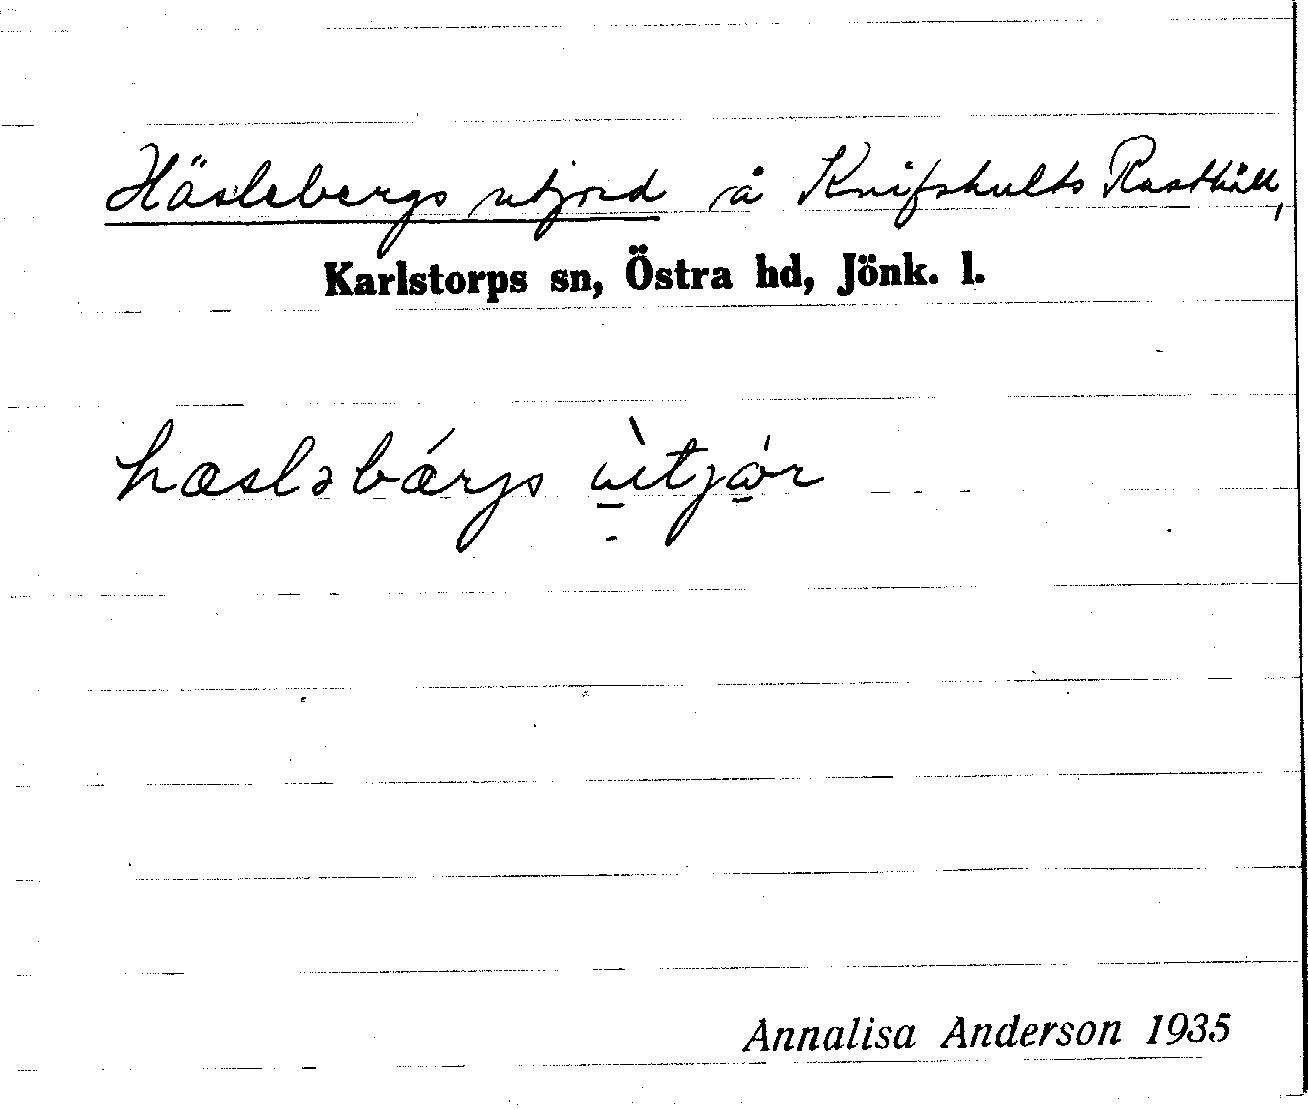 Häslebergs utjord å Knifshults Rusthåll,
Karlstorps sn, Östra hd, Jönk. l.
hæsləbærjs ùtjór
Annalisa Anderson 1935